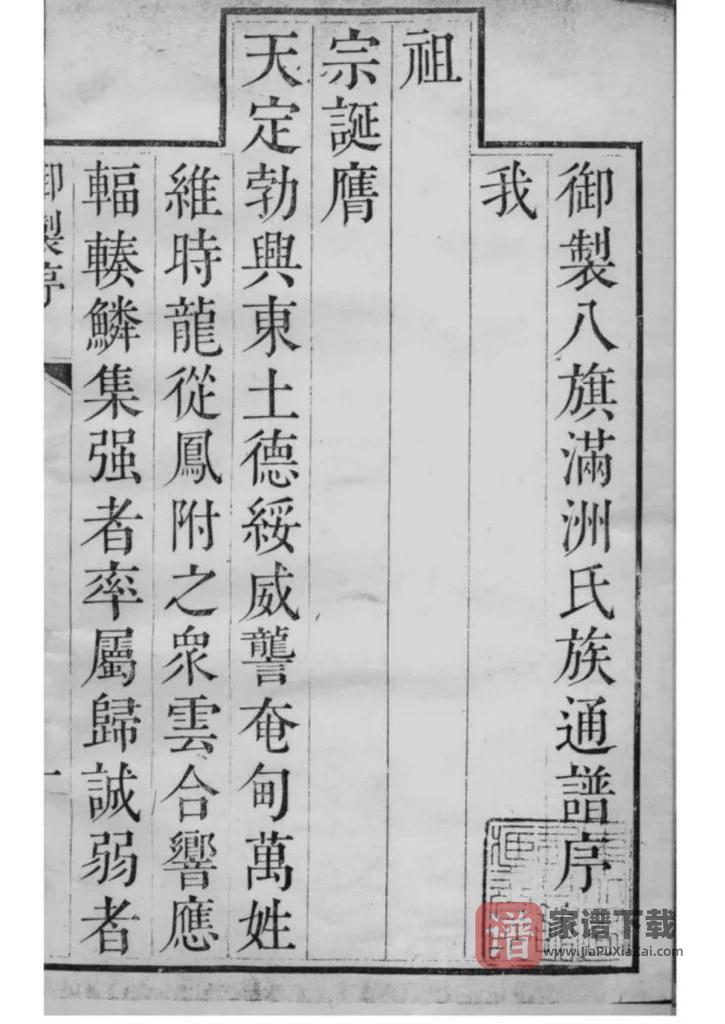 御製八旗滿洲氏族通譜序
我
祖
宗誕膺
天定勃興東土德綏威讋奄甸萬姓
維時龍從鳳附之衆雲合響應
輻輳鱗集强者率屬歸誠弱者
御製序
一
譜
家谱下载
www.jiaPuXiaZai.com